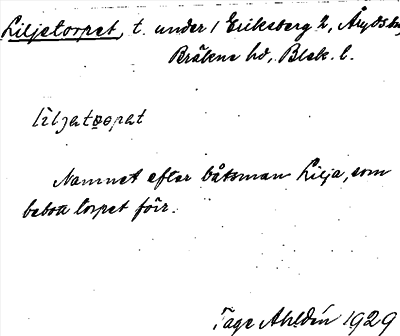 Liljetorpet, t. under 1 Eriksberg 2, Åryds sn,
Bräkne hd, Blek. l.
liljetorpat
Namnet efter båtsman Lilja, som
bebott torpet förr.
Tage Ahldén 1929